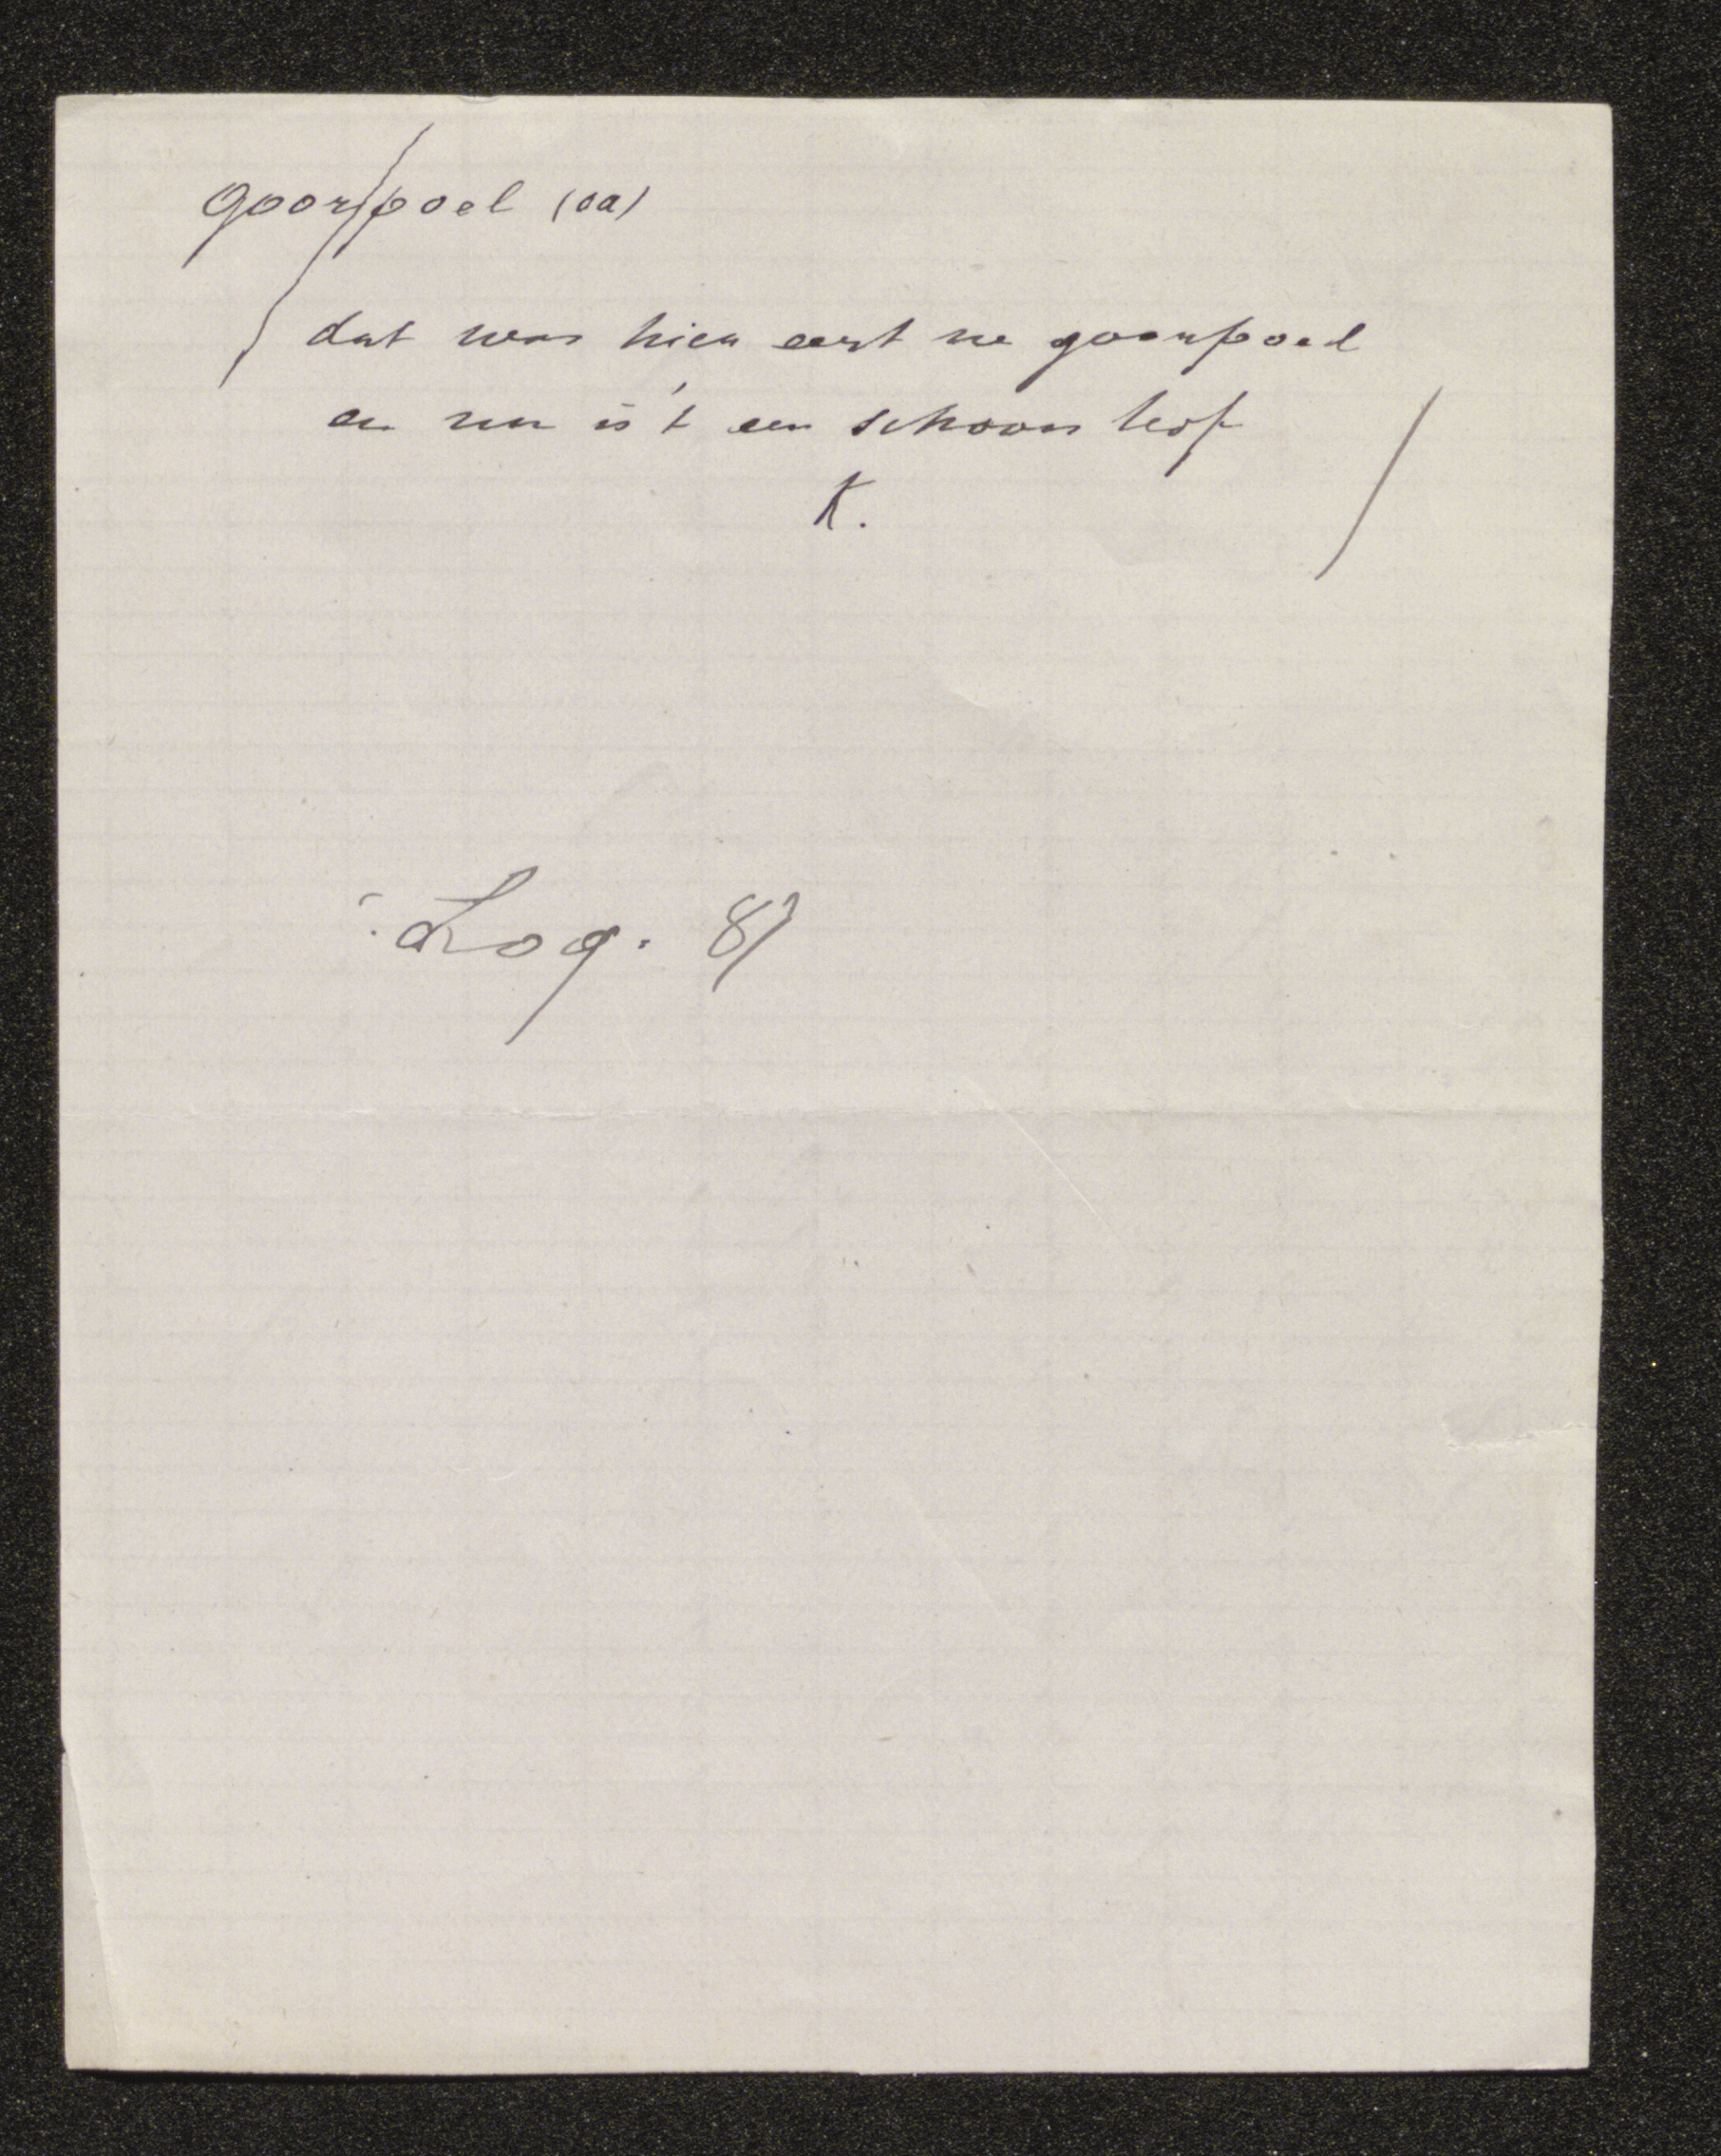 goorpoel (oa)
dat was hier eerst ne goorpoel
en nu is 't een schoon hof
K.
Loq. 81